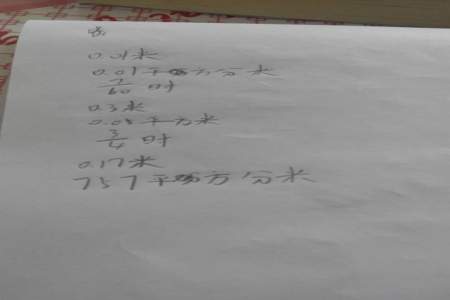 答
0.04米
0.01平方分米
7/60时
0.3米
0.05平方米
3/4时
0.17米
757平方分米